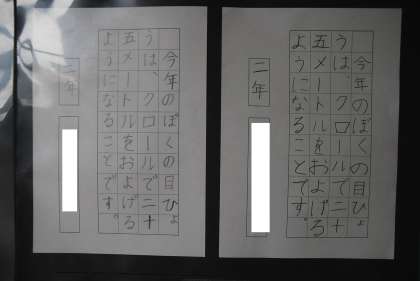 今年のぼくの目ひょ
うは、クロールで二十
五メートルをおよげる
ようになることです。
二年
今年のぼくの目ひょ
うは、クロールで二十
五メートルをおよげる
ようになることです。
二年